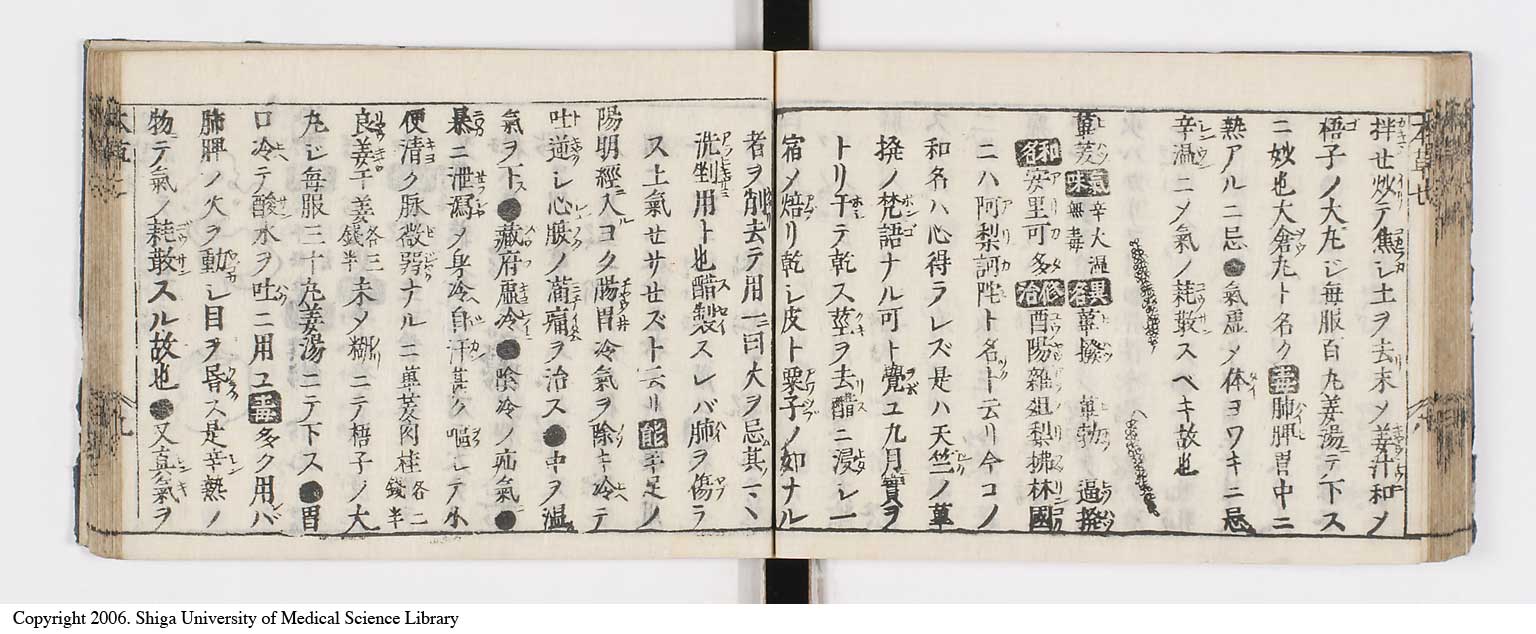 拌セ炒テ焦シ土ヲ去末メ姜汁和ノ
梧子ノ大丸ジ毎服百丸姜湯ニテ下ス
ニ妙也大倉丸ト名ク毒肺脾胃中ニ
熱アルニ忌●氣虚メ体ヨワキニ忌
辛温ニメ氣ノ耗散スベキ故也
蓽茇氣味辛大温無毒異名蓽撥 蓽勃 逼撥
和名安里可多修治酉陽雑爼梨拂林國
ニハ阿梨訶陀ト名ト云リ今コノ
和名ハ心得ラレズ是ハ天竺ノ蓽
撥ノ梵語ナル可ト覺ユ九月實ヲ
トリ干テ乾ス莖ヲ去醋ニ浸シ一
宿メ焙リ乾シ皮ト粟子ノ如ナル
者ヲ削去テ用一ニ曰火ヲ忌其マヽ
洗剉用ト也醋製スレバ肺ヲ傷ラ
ス上氣セサセズト云リ能キ足ノ
陽明經ニ入ルコク腸胃冷氣ヲ除キ冷テ
吐逆シ心腹ノ滿痛ヲ治ス●中ヲ温
氣ヲ下ス●藏府虚冷●陰冷ノ疝氣●
暴ニ泄瀉ノ身冷自汗甚ク嘔シテ小
便清ク脉微弱ナルニ蓽茇肉桂各二錢半
良姜干姜各三錢半末メ糊ニテ梧子ノ大
丸ジ毎服三十丸姜湯ニテ下ス●胃
口冷テ酸水ヲ吐ニ用ユ毒多ク用バ
肺脾ノ火ヲ動シ目ヲ昏ス是辛熱ノ
物ニテ氣ノ耗散スル故也●又真氣ヲ
Copyright 2006. Shiga University of Medical Science Library